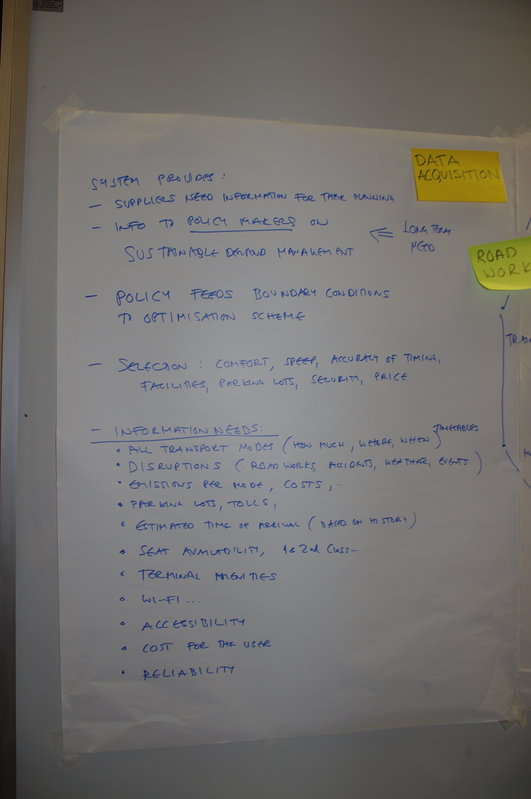 DATA
ACQUISITION
SYSTEM PROVIDES:
- SUPPLIERS NEED INFORMATION FOR THEIR PLANNING
- INFO TO POLICY MAKERS ON
SUSTAINABLE DEMAND MANAGEMENT
⇐ LONG TERM
NEED
ROAD
WORK
- POLICY FEEDS BOUNDARY CONDITIONS
TO OPTIMISATION SCHEME
- SELECTION: COMFORT, SPEED, ACCURACY OF TIMING,
FACILITIES, PARKING LOTS, SECURITY, PRICE
- INFORMATION NEEDS:
• ALL TRANSPORT MODES (HOW MUCH, WHERE, WHEN) TIMETABLES
• DISRUPTIONS (ROAD WORKS, ACCIDENTS, WEATHER, EVENTS)
• EMISSIONS PER MODE, COSTS, ..
• PARKING LOTS, TOLLS,
• ESTIMATED TIME OF ARRIVAL (BASED ON HISTORY)
• SEAT AVAILABILITY, 1 & 2nd Class..
• TERMINAL AMENITIES
• WI-FI ...
• ACCESSIBILITY
• COST FOR THE USER
• RELIABILITY